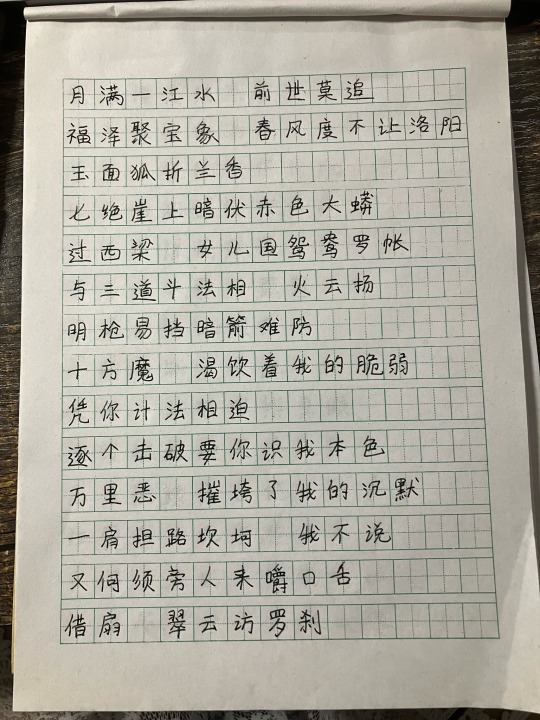 月满一江水 前世莫追
福泽聚宝象 春风度不让洛阳
玉面狐折兰香
七绝崖上暗伏赤色大蟒
过西梁 女儿国鸳鸯罗帐
与三道斗法相 火云扬
明枪易挡暗箭难防
十方魔 渴饮着我的脆弱
凭你计法相迫
逐个击破要你识我本色
万里恶 摧垮了我的沉默
一肩担路坎坷 我不说
又何须旁人来嚼口舌
借扇 翠云访罗刹